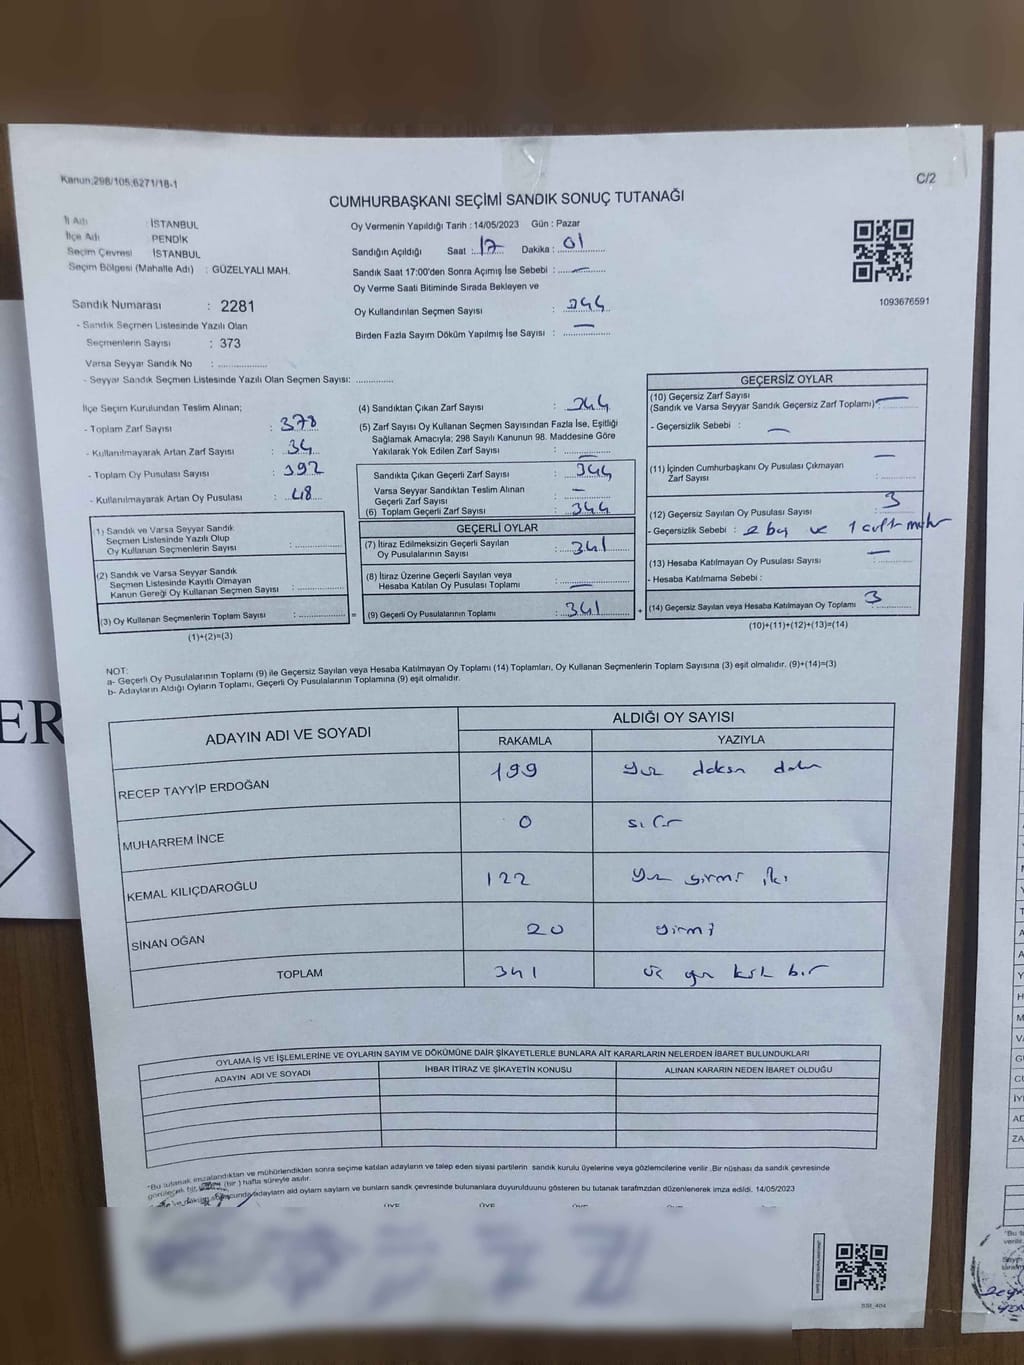 Kanun;298/105,6271/18-1
C/2
CUMHURBAŞKANI SEÇİMİ SANDIK SONUÇ TUTANAĞI
İl Adı : İSTANBUL
İlçe Adı : PENDİK
Seçim Çevresi : İSTANBUL
Seçim Bölgesi (Mahalle Adı) : GÜZELYALI MAH.
Sandık Numarası : 2281
- Sandık Seçmen Listesinde Yazılı Olan
Seçmenlerin Sayısı : 373
Varsa Seyyar Sandık No : ..................
- Seyyar Sandık Seçmen Listesinde Yazılı Olan Seçmen Sayısı: ............
Oy Vermenin Yapıldığı Tarih : 14/05/2023 Gün : Pazar
Sandığın Açıldığı Saat : 17 Dakika : 01
Sandık Saat 17:00'den Sonra Açımış İse Sebebi : —
Oy Verme Saati Bitiminde Sırada Bekleyen ve
Oy Kullandırılan Seçmen Sayısı : 344
Birden Fazla Sayım Döküm Yapılmış İse Sayısı : —
1093676591
İlçe Seçim Kurulundan Teslim Alınan;
- Toplam Zarf Sayısı : 378
- Kullanılmayarak Artan Zarf Sayısı : 34
- Toplam Oy Pusulası Sayısı : 392
- Kullanılmayarak Artan Oy Pusulası : 48
(1) Sandık ve Varsa Seyyar Sandık
Seçmen Listesinde Yazılı Olup
Oy Kullanan Seçmenlerin Sayısı : ............
(2) Sandık ve Varsa Seyyar Sandık
Seçmen Listesinde Kayıtlı Olmayan
Kanun Gereği Oy Kullanan Seçmen Sayısı : ............
(3) Oy Kullanan Seçmenlerin Toplam Sayısı : ............ =
(1)+(2)=(3)
(4) Sandıktan Çıkan Zarf Sayısı : 344
(5) Zarf Sayısı Oy Kullanan Seçmen Sayısından Fazla İse, Eşitliği
Sağlamak Amacıyla; 298 Sayılı Kanunun 98. Maddesine Göre
Yakılarak Yok Edilen Zarf Sayısı : —
Sandıkta Çıkan Geçerli Zarf Sayısı : 344
Varsa Seyyar Sandıktan Teslim Alınan
Geçerli Zarf Sayısı : —
(6) Toplam Geçerli Zarf Sayısı : 344
GEÇERLİ OYLAR
(7) İtiraz Edilmeksizin Geçerli Sayılan
Oy Pusulalarının Sayısı : 341
(8) İtiraz Üzerine Geçerli Sayılan veya
Hesaba Katılan Oy Pusulası Toplamı : —
(9) Geçerli Oy Pusulalarının Toplamı : 341 +
GEÇERSİZ OYLAR
(10) Geçersiz Zarf Sayısı
(Sandık ve Varsa Seyyar Sandık Geçersiz Zarf Toplamı) : —
- Geçersizlik Sebebi : —
(11) İçinden Cumhurbaşkanı Oy Pusulası Çıkmayan —
Zarf Sayısı : ............
(12) Geçersiz Sayılan Oy Pusulası Sayısı : 3
- Geçersizlik Sebebi : 2 boş ve 1 çift mühür
(13) Hesaba Katılmayan Oy Pusulası Sayısı : —
- Hesaba Katılmama Sebebi :
(14) Geçersiz Sayılan veya Hesaba Katılmayan Oy Toplamı : 3
(10)+(11)+(12)+(13)=(14)
NOT:
a- Geçerli Oy Pusulalarının Toplamı (9) ile Geçersiz Sayılan veya Hesaba Katılmayan Oy Toplamı (14) Toplamları, Oy Kullanan Seçmenlerin Toplam Sayısına (3) eşit olmalıdır. (9)+(14)=(3)
b- Adayların Aldığı Oyların Toplamı, Geçerli Oy Pusulalarının Toplamına (9) eşit olmalıdır.
ER
ADAYIN ADI VE SOYADI
ALDIĞI OY SAYISI
RAKAMLA YAZIYLA
RECEP TAYYİP ERDOĞAN 199 Yüz doksan dokuz
MUHARREM İNCE 0 sıfır
KEMAL KILIÇDAROĞLU 122 Yüz yirmi iki
SİNAN OĞAN 20 yirmi
TOPLAM 341 üç yüz kırk bir
OYLAMA İŞ VE İŞLEMLERİNE VE OYLARIN SAYIM VE DÖKÜMÜNE DAİR ŞİKAYETLERLE BUNLARA AİT KARARLARIN NELERDEN İBARET BULUNDUKLARI
ADAYIN ADI VE SOYADI
İHBAR İTİRAZ VE ŞİKAYETİN KONUSU
ALINAN KARARIN NEDEN İBARET OLDUĞU
*Bu tutanak imzalandıktan ve mühürlendikten sonra seçime katılan adayların ve talep eden siyasi partilerin sandık kurulu üyelerine veya gözlemcilerine verilir. Bir nüshası da sandık çevresinde
görülecek bir (bir) hafta süreyle asılır.
adayların ald oyların sayların ve bunların sandk çevresinde bulunanlara duyurulduunu gösteren bu tutanak tarafmzdan düzenlenerek imza edildi. 14/05/2023